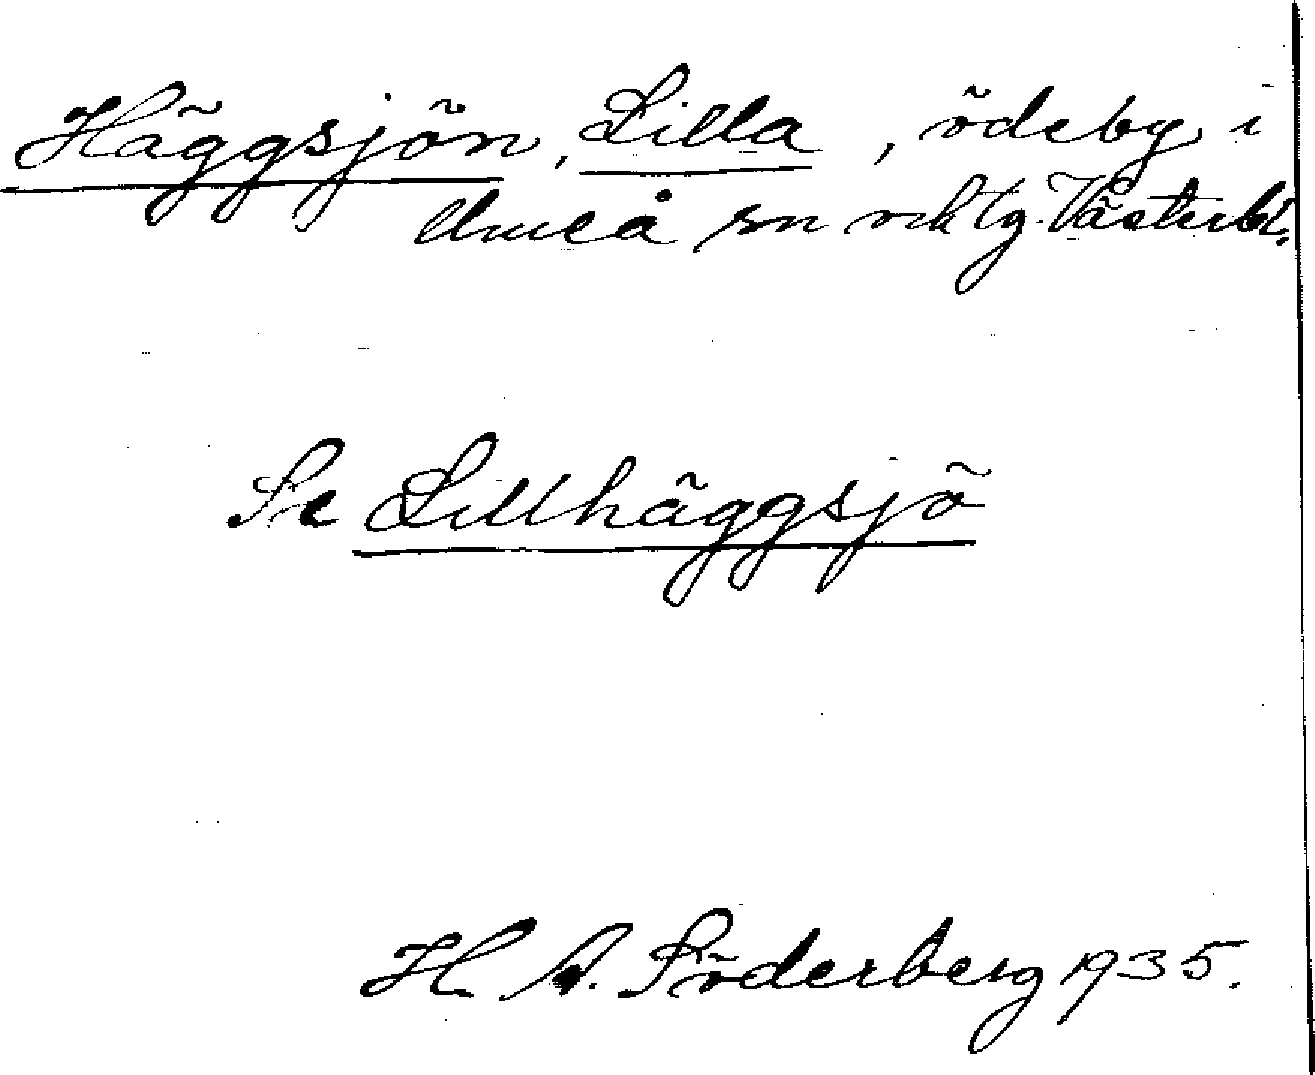 Häggsjön, Lilla, ödeby i
Umeå sn och tg. Västerbt.
Se Lillhäggsjö
H. A. Söderberg 1935.